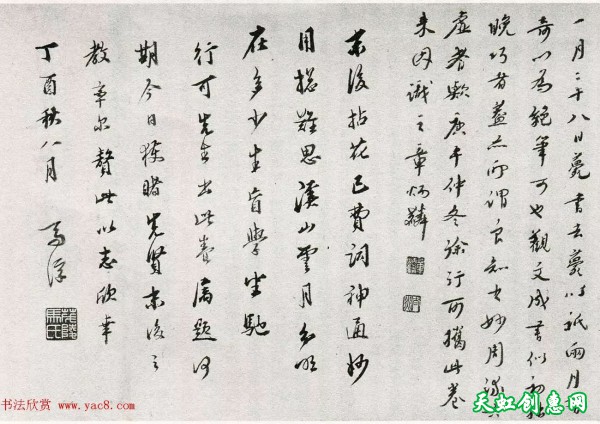 一月二十八日薨書去薨時祇兩月
奇以為絕筆可也觀文成書似初
晚巧者蓋亦所謂良知之妙周流六
虛者歟庚午仲冬徐行可攜此卷
來因識之章炳麟
末後拈花已費詞神通妙
用總難思溪山雲月分明
在多少生盲學坐馳
行可先生出此卷屬題何
期今日獲睹先賢末後之
教率爾贅此以志欣幸
丁酉秋八月 馬浮
书法欣赏 www.yac8.com
天虹创意网